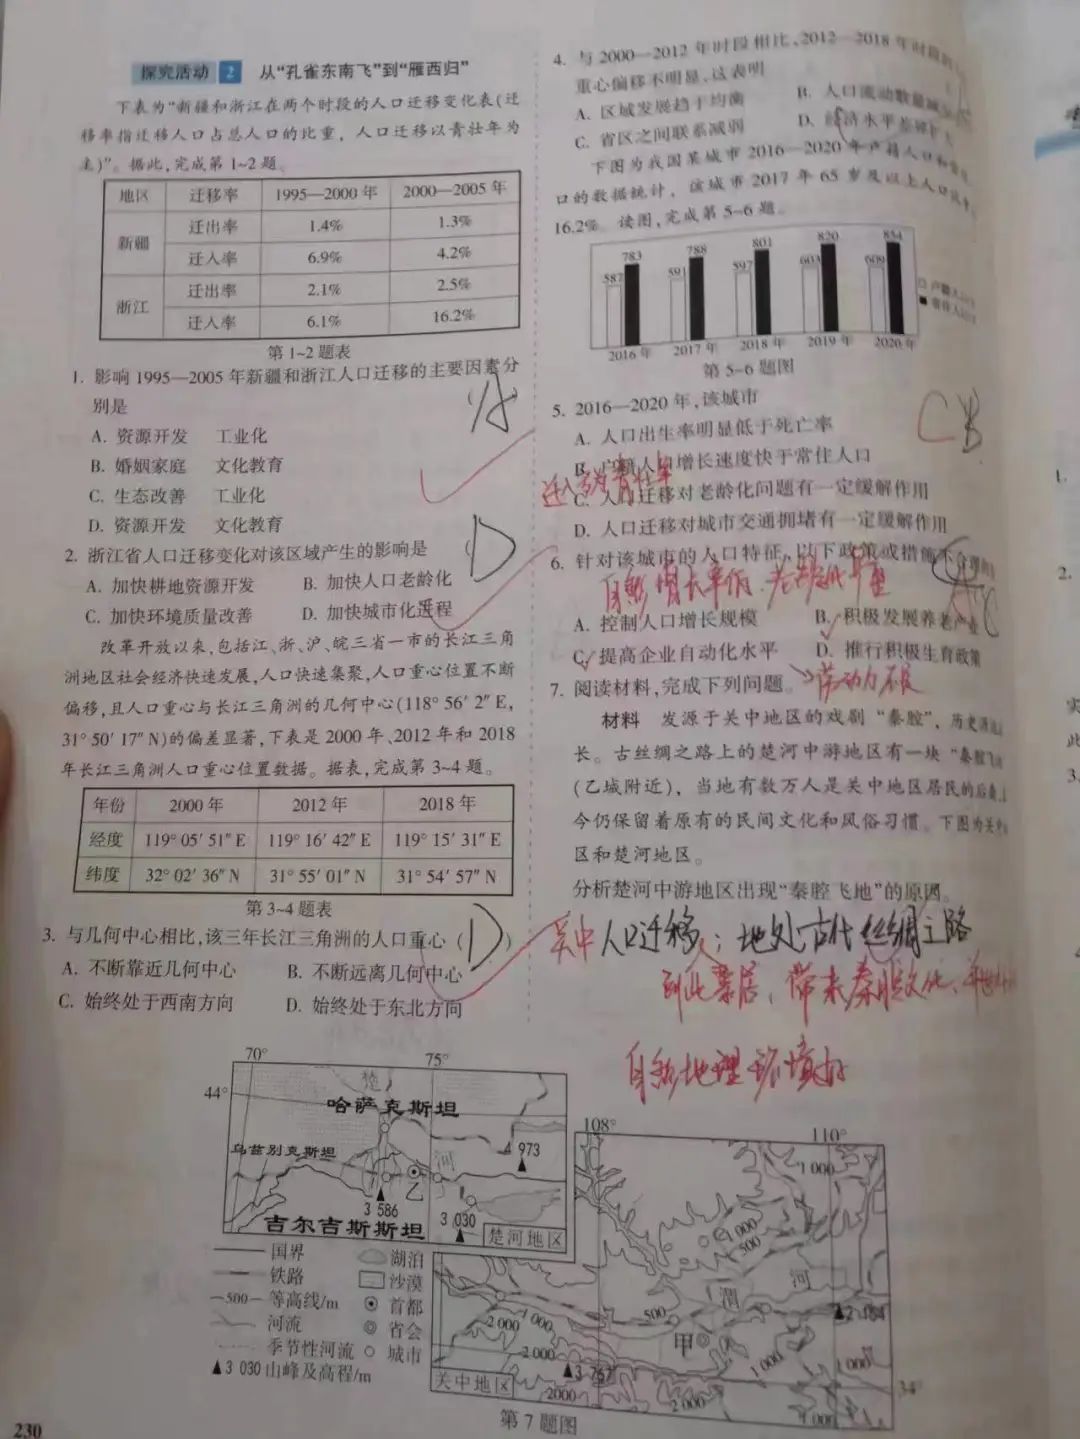 探究活动 2 从“孔雀东南飞”到“雁西归”
下表为“新疆和浙江在两个时段的人口迁移变化表(迁
移率指迁移人口占总人口的比重，人口迁移以青壮年为
主)”。据此,完成第1~2题。
地区 迁移率 1995—2000年 2000—2005年
新疆 迁出率 1.4% 1.3%
迁入率 6.9% 4.2%
浙江 迁出率 2.1% 2.5%
迁入率 6.1% 16.2%
第1~2题表
1. 影响1995—2005年新疆和浙江人口迁移的主要因素分
别是 ( A
A. 资源开发 工业化
B. 婚姻家庭 文化教育
C. 生态改善 工业化
D. 资源开发 文化教育
2. 浙江省人口迁移变化对该区域产生的影响是 ( D
A. 加快耕地资源开发 B. 加快人口老龄化
C. 加快环境质量改善 D. 加快城市化进程
改革开放以来,包括江、浙、沪、皖三省一市的长江三角
洲地区社会经济快速发展,人口快速集聚,人口重心位置不断
偏移,且人口重心与长江三角洲的几何中心(118° 56′ 2″ E,
31° 50′ 17″ N)的偏差显著,下表是2000年、2012年和2018
年长江三角洲人口重心位置数据。据表,完成第3~4题。
年份 2000年 2012年 2018年
经度 119° 05′ 51″ E 119° 16′ 42″ E 119° 15′ 31″ E
纬度 32° 02′ 36″ N 31° 55′ 01″ N 31° 54′ 57″ N
第3~4题表
3. 与几何中心相比,该三年长江三角洲的人口重心 ( D )
A. 不断靠近几何中心 B. 不断远离几何中心
C. 始终处于西南方向 D. 始终处于东北方向
4. 与2000—2012年时段相比,2012—2018年时段的
重心偏移不明显,这表明
A. 区域发展趋于均衡 B. 人口流动数量减
C. 省区之间联系减弱 D. 经济水平差异扩大
下图为我国某城市2016—2020年户籍人口和常住
口的数据统计，该城市2017年65岁及以上人口
16.2%。读图,完成第5~6题。
587 783 591 788 597 801 603 820 609 834
户籍人口
常住人口
2016年 2017年 2018年 2019年 2020年
第5~6题图
5. 2016—2020年,该城市 C B
A. 人口出生率明显低于死亡率
B. 户籍人口增长速度快于常住人口
迁入多为青壮年
C. 人口迁移对老龄化问题有一定缓解作用
D. 人口迁移对城市交通拥堵有一定缓解作用
6. 针对该城市的人口特征,以下政策或措施不合理的
自然增长率低,老龄化严重 A C
A. 控制人口增长规模 B. 积极发展养老产业
C. 提高企业自动化水平 D. 推行积极生育政策
劳动力不足
7. 阅读材料,完成下列问题。
材料 发源于关中地区的戏剧“秦腔”，历史
长。古丝绸之路上的楚河中游地区有一块“秦腔飞
(乙城附近)，当地有数万人是关中地区居民的后裔,
今仍保留着原有的民间文化和风俗习惯。下图为关中
区和楚河地区。
分析楚河中游地区出现“秦腔飞地”的原因。
关中人口迁移；地处古代丝绸之路
到此聚居、带来秦腔文化、
自然地理环境好
70° 75°
44°
楚
哈萨克斯坦
乌兹别克斯坦
河
4 973
乙
3 586
3 030
吉尔吉斯斯坦
楚河地区
国界 湖泊
铁路 沙漠
—500— 等高线/m 首都
河流 省会
季节性河流 城市
▲3 030 山峰及高程/m
108° 110°
1 000
1 000
500
渭 河
500
2 000
1 000
甲
2 000
3 767
2000
2 000
1 000
1 000
1 000
34°
关中地区
第7题图
230